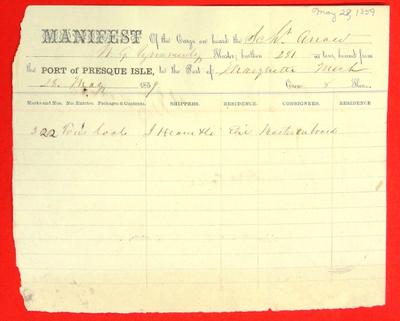 May 28, 1859
MANIFEST Of the Cargo on board the Schr
Master, burthen 281 tons, bound from
the PORT OF PRESQUE ISLE, to the Port of Marquette Mich
28 May 1859 Crew 8 Men.
Marks and Nos. No. Entries. Packages & Contents. SHIPPERS. RESIDENCE. CONSIGNEES. RESIDENCE
322 Tons Coal J Hearn & Co Erie